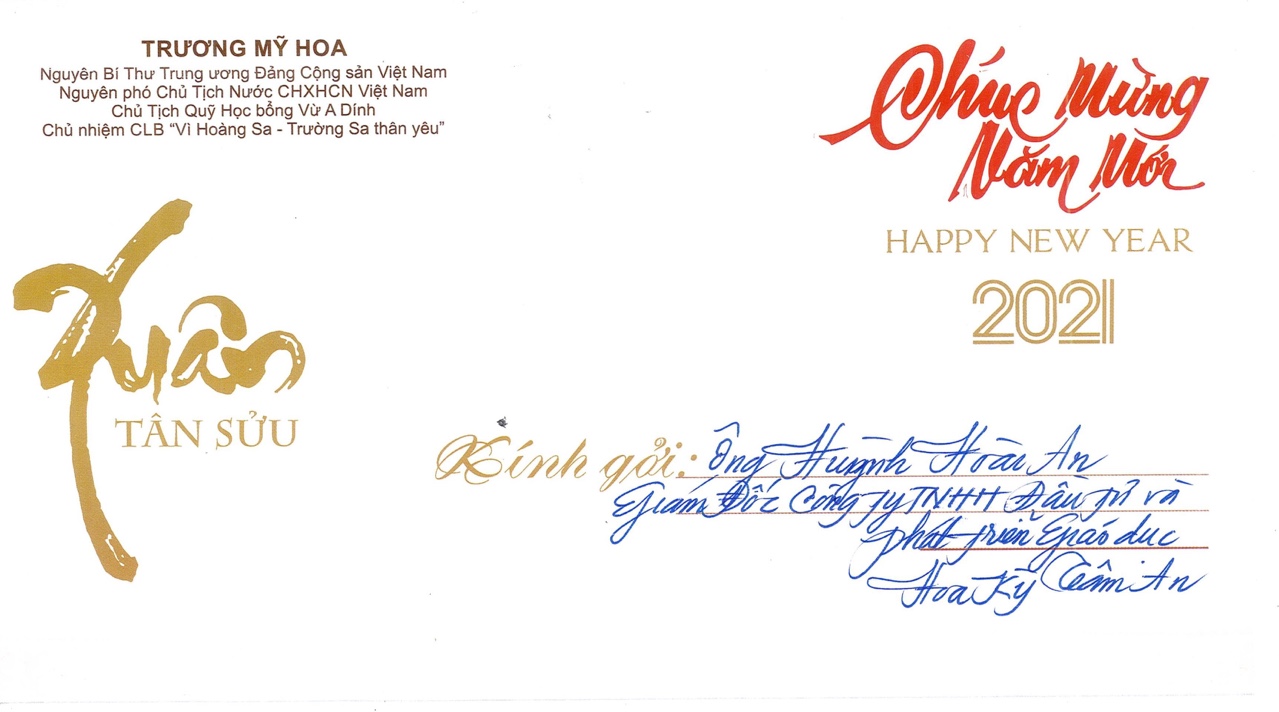 TRƯƠNG MỸ HOA
Nguyên Bí Thư Trung ương Đảng Cộng sản Việt Nam
Nguyên phó Chủ Tịch Nước CHXHCN Việt Nam
Chủ Tịch Quỹ Học bổng Vừ A Dính
Chủ nhiệm CLB “Vì Hoàng Sa - Trường Sa thân yêu”
Chúc Mừng
Năm Mới
HAPPY NEW YEAR
2021
Xuân
TÂN SỬU
Kính gởi: Ông Huỳnh Hoài An
Giám Đốc Công ty TNHH Đầu tư và
phát triển Giáo dục
Hoa Kỳ Tâm An